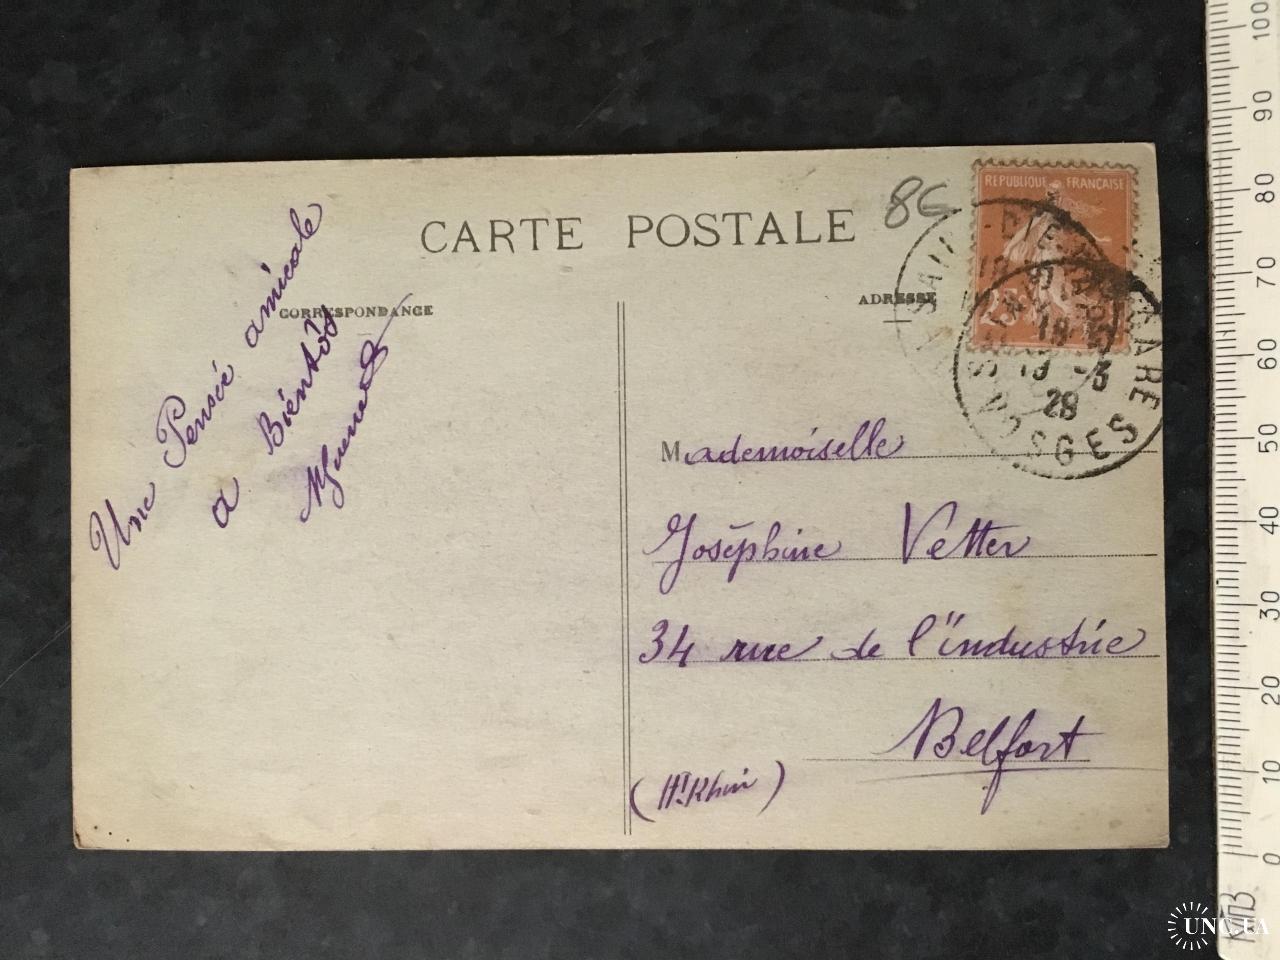 CARTE POSTALE
86
REPUBLIQUE FRANÇAISE
25
CORRESPONDANCE
ADRESSE
Une Pensée amicale
a Biéntôt
SAINT-DIE
GARE
VOSGES
18
19 -3
28
Mademoiselle
Joséphine Vetter
34 rue de l'industrie
Belfort
(Ht Rhin)
100
90
80
70
60
50
40
30
20
10
0
UNC.UA